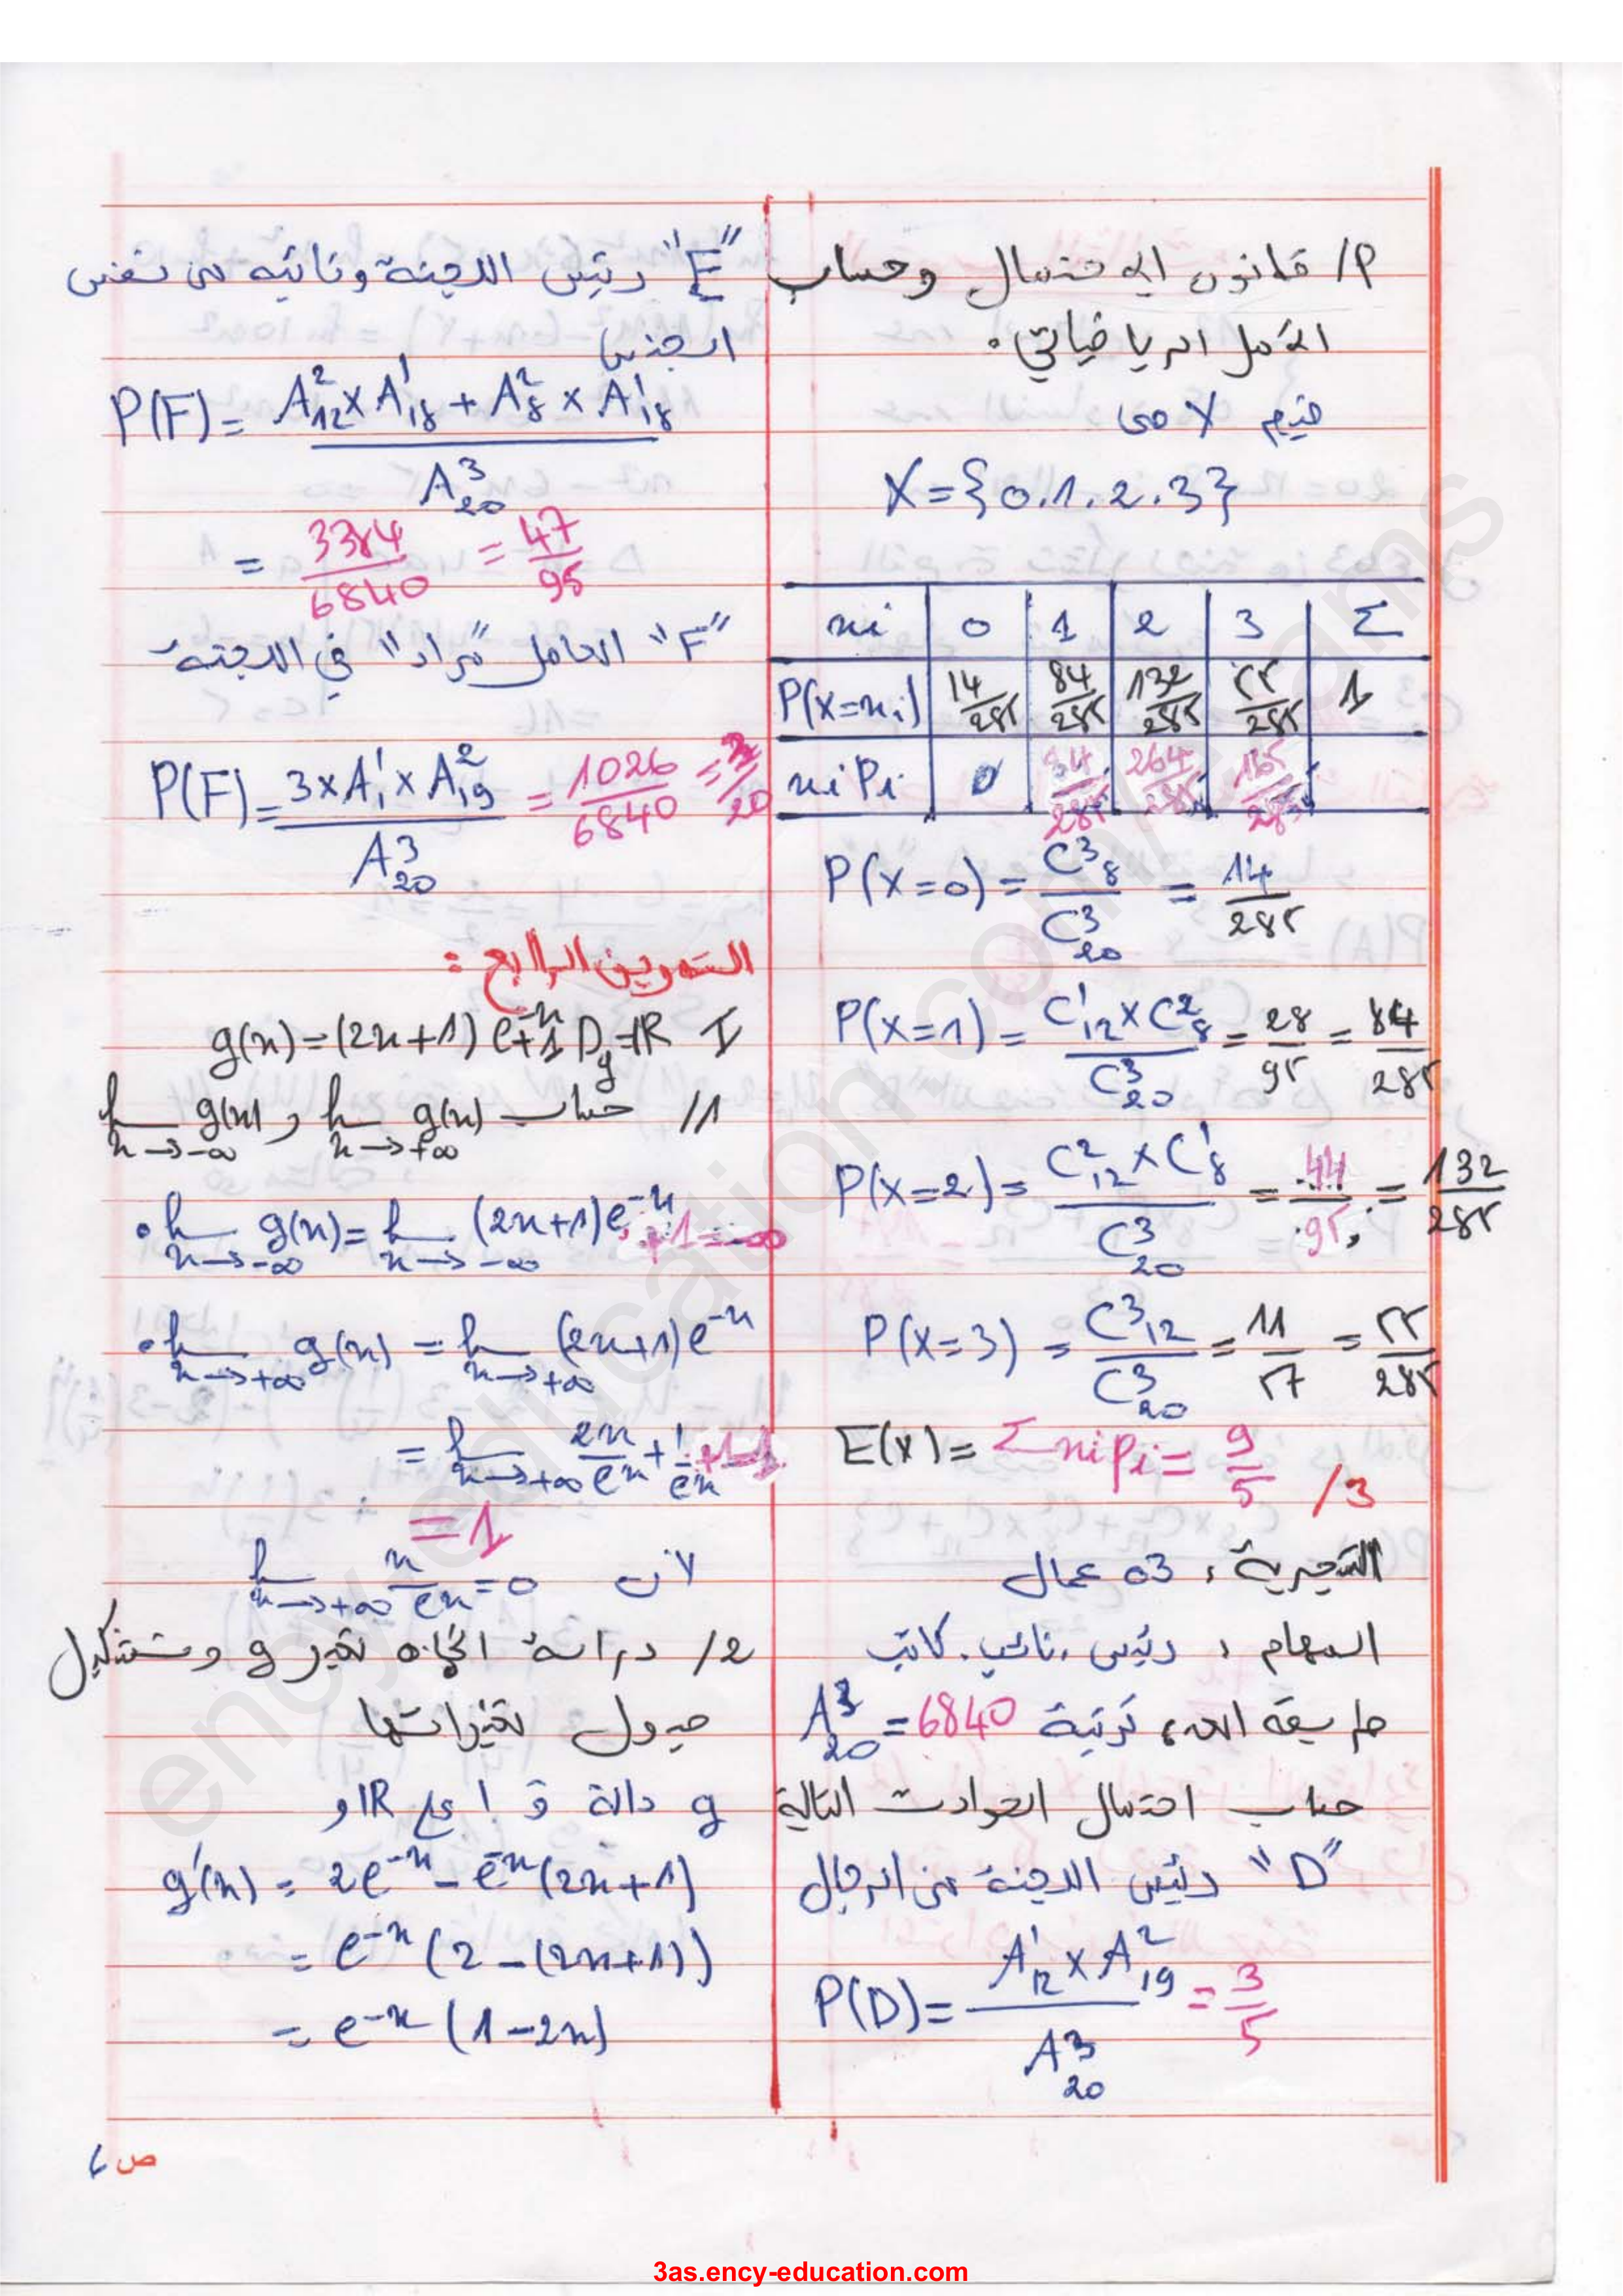 P/ قانون الاحتمال وحساب
الأمل الرياضياتي.
قيم X هي
X={0.1.2.3}
xi | 0 | 1 | 2 | 3 | Σ
P(X=xi) | 14/285 | 84/285 | 132/285 | 55/285 | 1
xi Pi | 0 | 84/285 | 264/285 | 165/285
P(X=0) = C³₈ / C³₂₀ = 14/285
P(X=1) = C¹₁₂ × C²₈ / C³₂₀ = 28/95 = 84/285
P(X=2) = C²₁₂ × C¹₈ / C³₂₀ = 44/95 = 132/285
P(X=3) = C³₁₂ / C³₂₀ = 11/57 = 55/285
E(X) = Σ xi Pi = 9/5
3/
التجربة: 03 عمال
المهام: رئيس، نائب، كاتب
طريقة العد: ترتيبة A³₂₀ = 6840
حساب احتمال الحوادث التالية
"D" رئيس اللجنة من الرجال
P(D) = A¹₁₂ × A²₁₉ / A³₂₀ = 3/5
"E" رئيس اللجنة ونائبه من نفس
الجنس
P(F) = A²₁₂ × A¹₁₈ + A²₈ × A¹₁₈ / A³₂₀
= 3384/6840 = 47/95
"F" العامل "مراد" في اللجنة
P(F) = 3 × A¹₁ × A²₁₉ / A³₂₀ = 1026/6840 = 3/20
التمرين الرابع :
I g(x) = (2x+1) e⁻ˣ+1 D_g=ℝ
1/ حساب lim x→+∞ g(x) و lim x→-∞ g(x)
• lim x→-∞ g(x) = lim x→-∞ (2x+1)e⁻ˣ +1 = -∞
• lim x→+∞ g(x) = lim x→+∞ (2x+1)e⁻ˣ
= lim x→+∞ 2x/eˣ + 1/eˣ +1 = 1
= 1
لأن lim x→+∞ x/eˣ = 0
2/ دراسة اتجاه تغير g وتشكيل
جدول تغيراتها
g دالة ق ا على ℝ و
g'(x) = 2e⁻ˣ - e⁻ˣ(2x+1)
= e⁻ˣ (2 - (2x+1))
= e⁻ˣ (1-2x)
ص 6
ency-education.com/exams
3as.ency-education.com